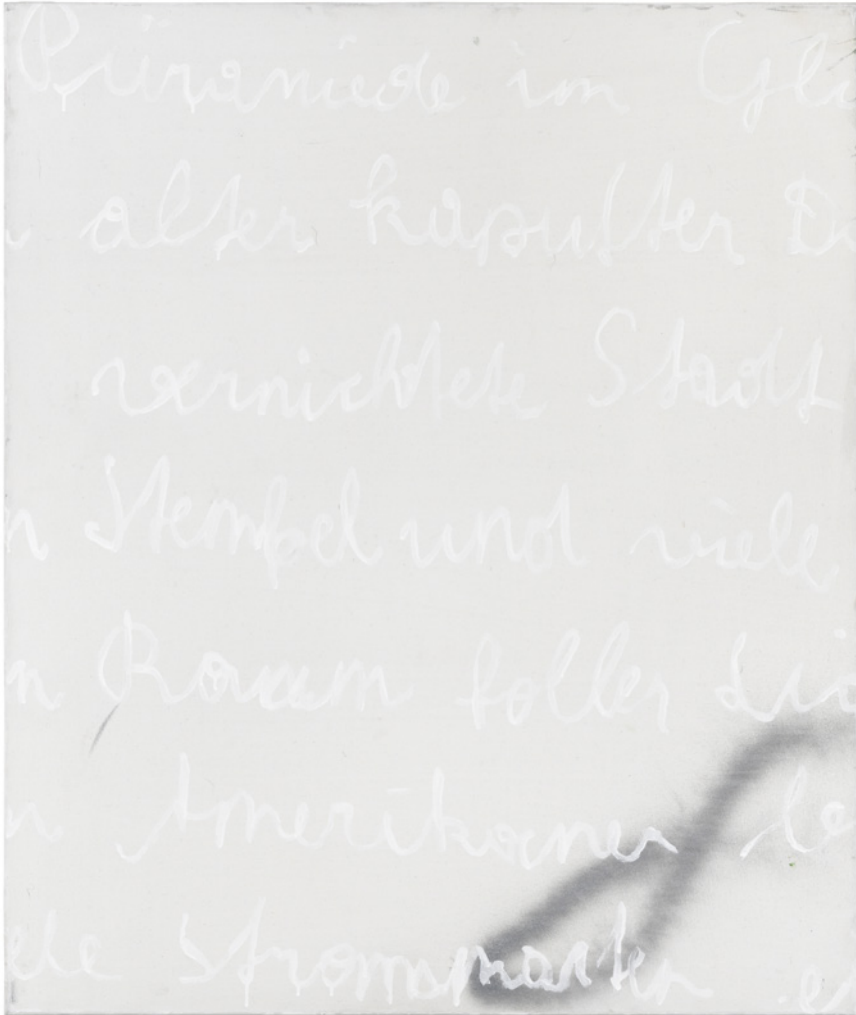 Püramiede im Gl
alter kaputter D
vernichtete Stadt
n Stempel und viele
n Raum foller Lic
n Amerikaner le
ele Strommasten er